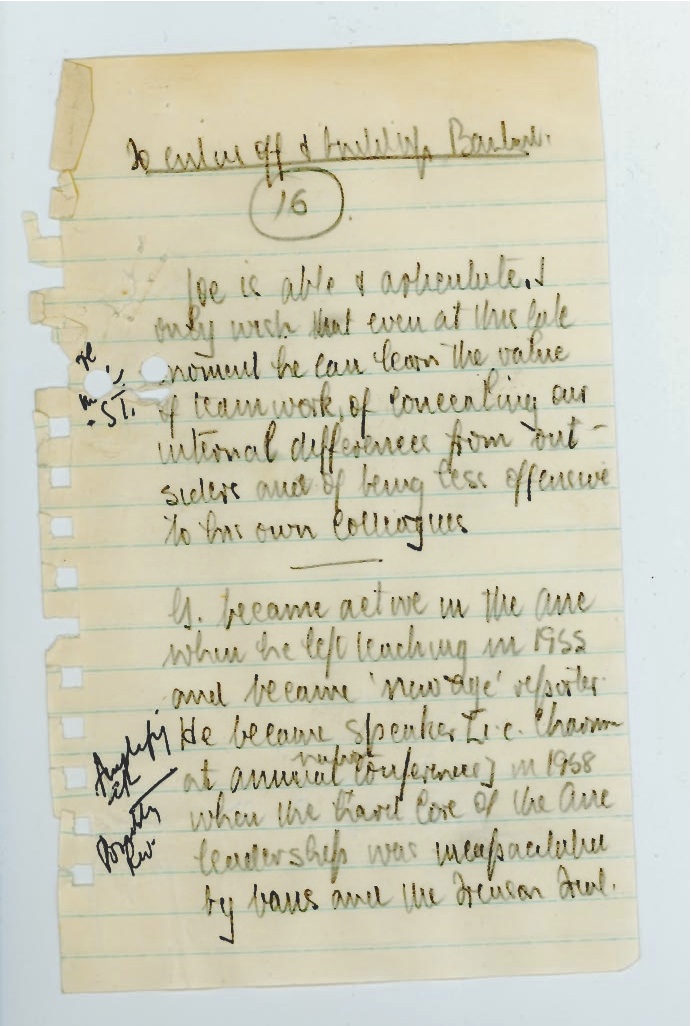 16
Joe is able & articulate. I
only wish that even at this late
moment he can learn the value
of teamwork, of concealing our
internal differences from out-
siders and of being less offensive
to his own colleagues
G. became active in the ANC
when he left teaching in 1955
and became 'New Age' reporter.
He became speaker i.e. Chairman
at annual national conference in 1958
when the hard core of the ANC
leadership was incapacitated
by bans and the Treason Trial.